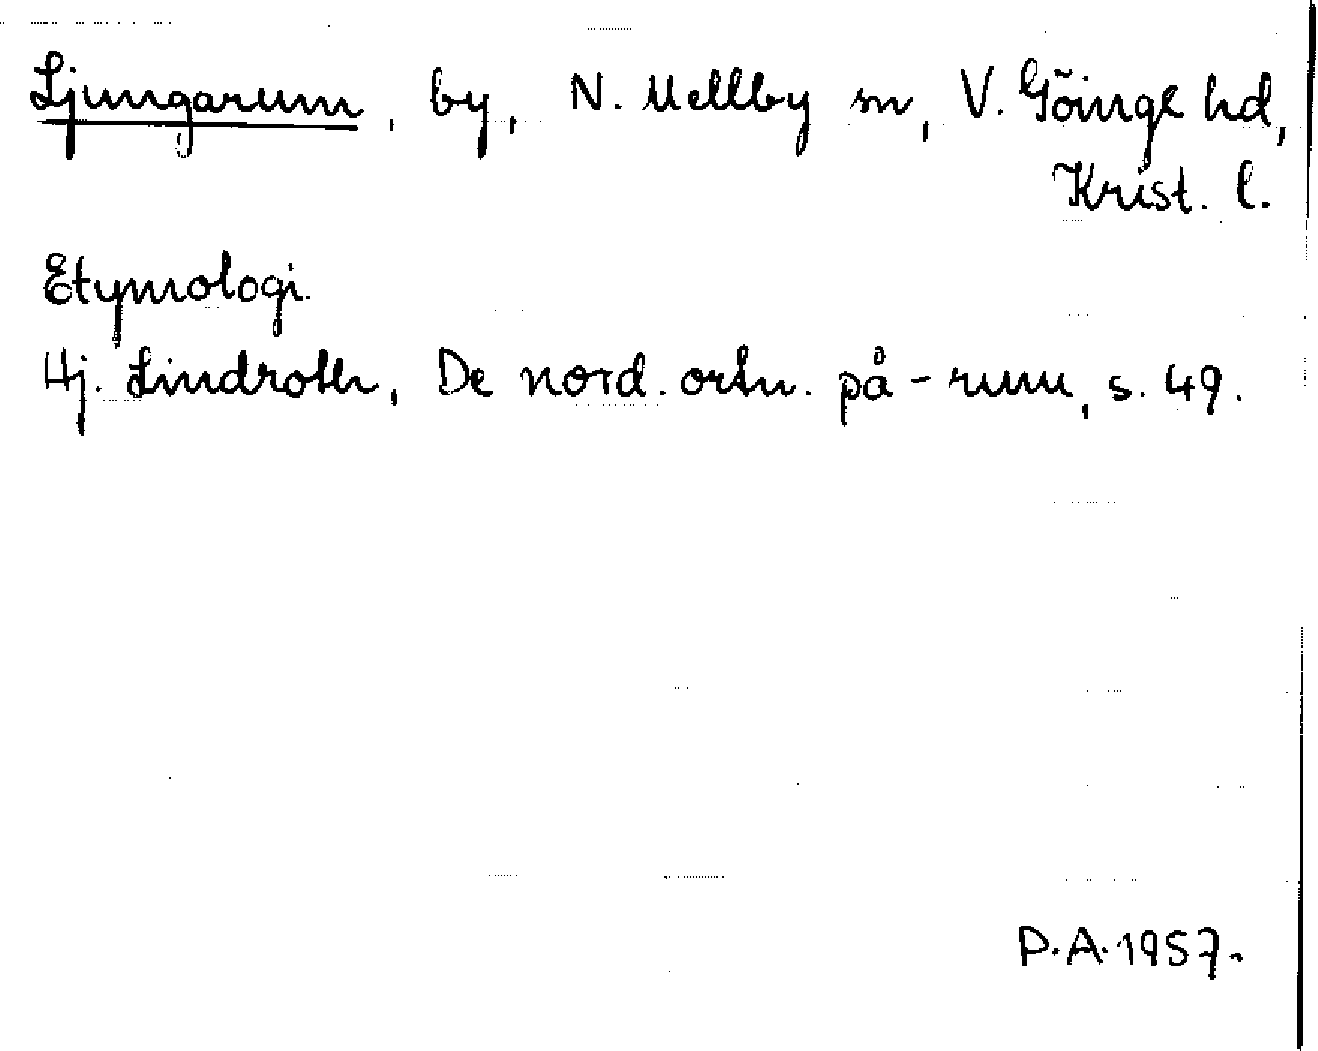 Ljungarum, by, N. Mellby sn, V. Göinge hd,
Krist. l.
Etymologi.
Hj. Lindroth, De nord. ortn. på -rum, s. 49.
P.A. 1957.